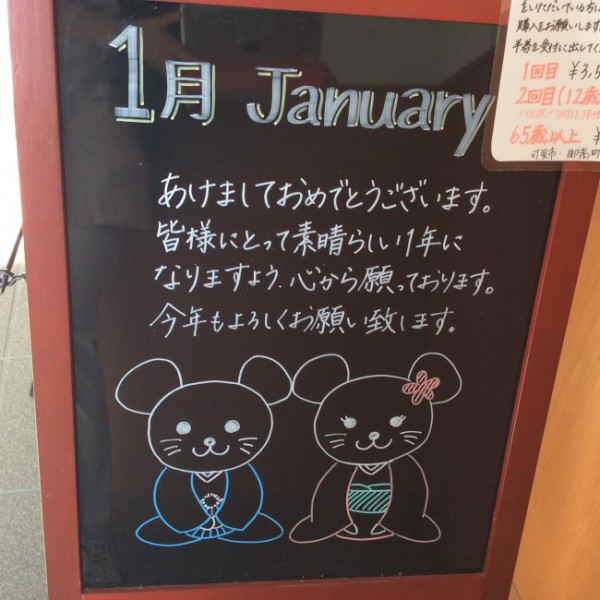 1月 January
あけましておめでとうございます。
皆様にとって素晴らしい1年に
なりますよう、心から願っております。
今年もよろしくお願い致します。
をいただいている方に
購入をお願いします
半券を受付に出してく
1回目 ¥3,5
2回目(12歳
65歳以上 ¥
可児市・御嵩町